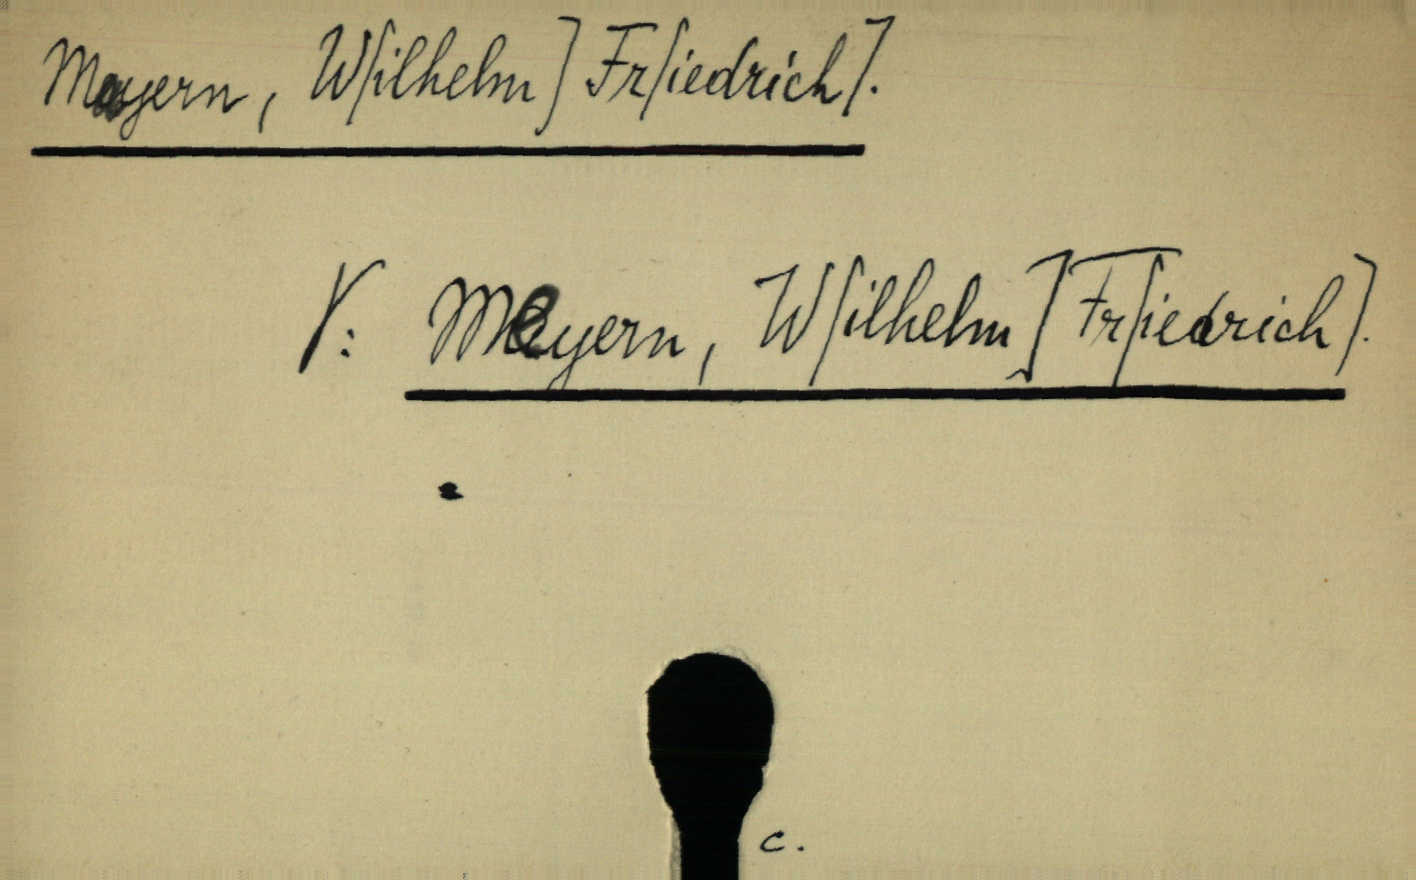 Mayern, W[ilhelm] Fr[iedrich].
V: Meyern, W[ilhelm] Fr[iedrich].
c.